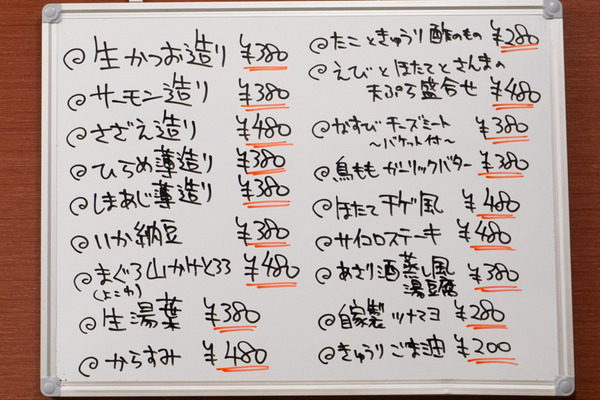 生かつお造り ¥380
サーモン造り ¥380
さざえ造り ¥480
ひらめ薄造り ¥380
しまあじ薄造り ¥380
いか納豆 ¥380
まぐろ山かけとろろ ¥480
(よこわ)
生湯葉 ¥380
からすみ ¥480
たこときゅうり酢のもの ¥280
えびとほたてとさんまの
天ぷら盛合せ ¥480
なすびチーズミート ¥380
〜バケット付〜
鳥ももガーリックバター ¥380
ほたてチゲ風 ¥480
サイコロステーキ ¥480
あさり酒蒸し風 ¥380
湯豆腐
自家製ツナマヨ ¥280
きゅうりごま油 ¥200